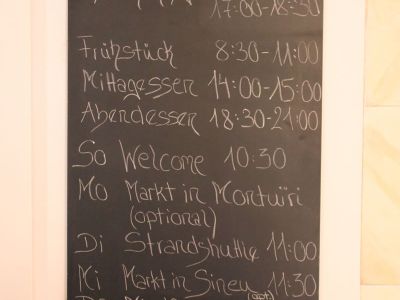 17:00-18:30
Frühstück 8:30-11:00
Mittagessen 14:00-15:00
Abendessen 18:30-21:00
So Welcome 10:30
Mo Markt in Montuïri
(optional)
Di Strandshuttle 11:00
Mi Markt in Sineu (opt) 11:30